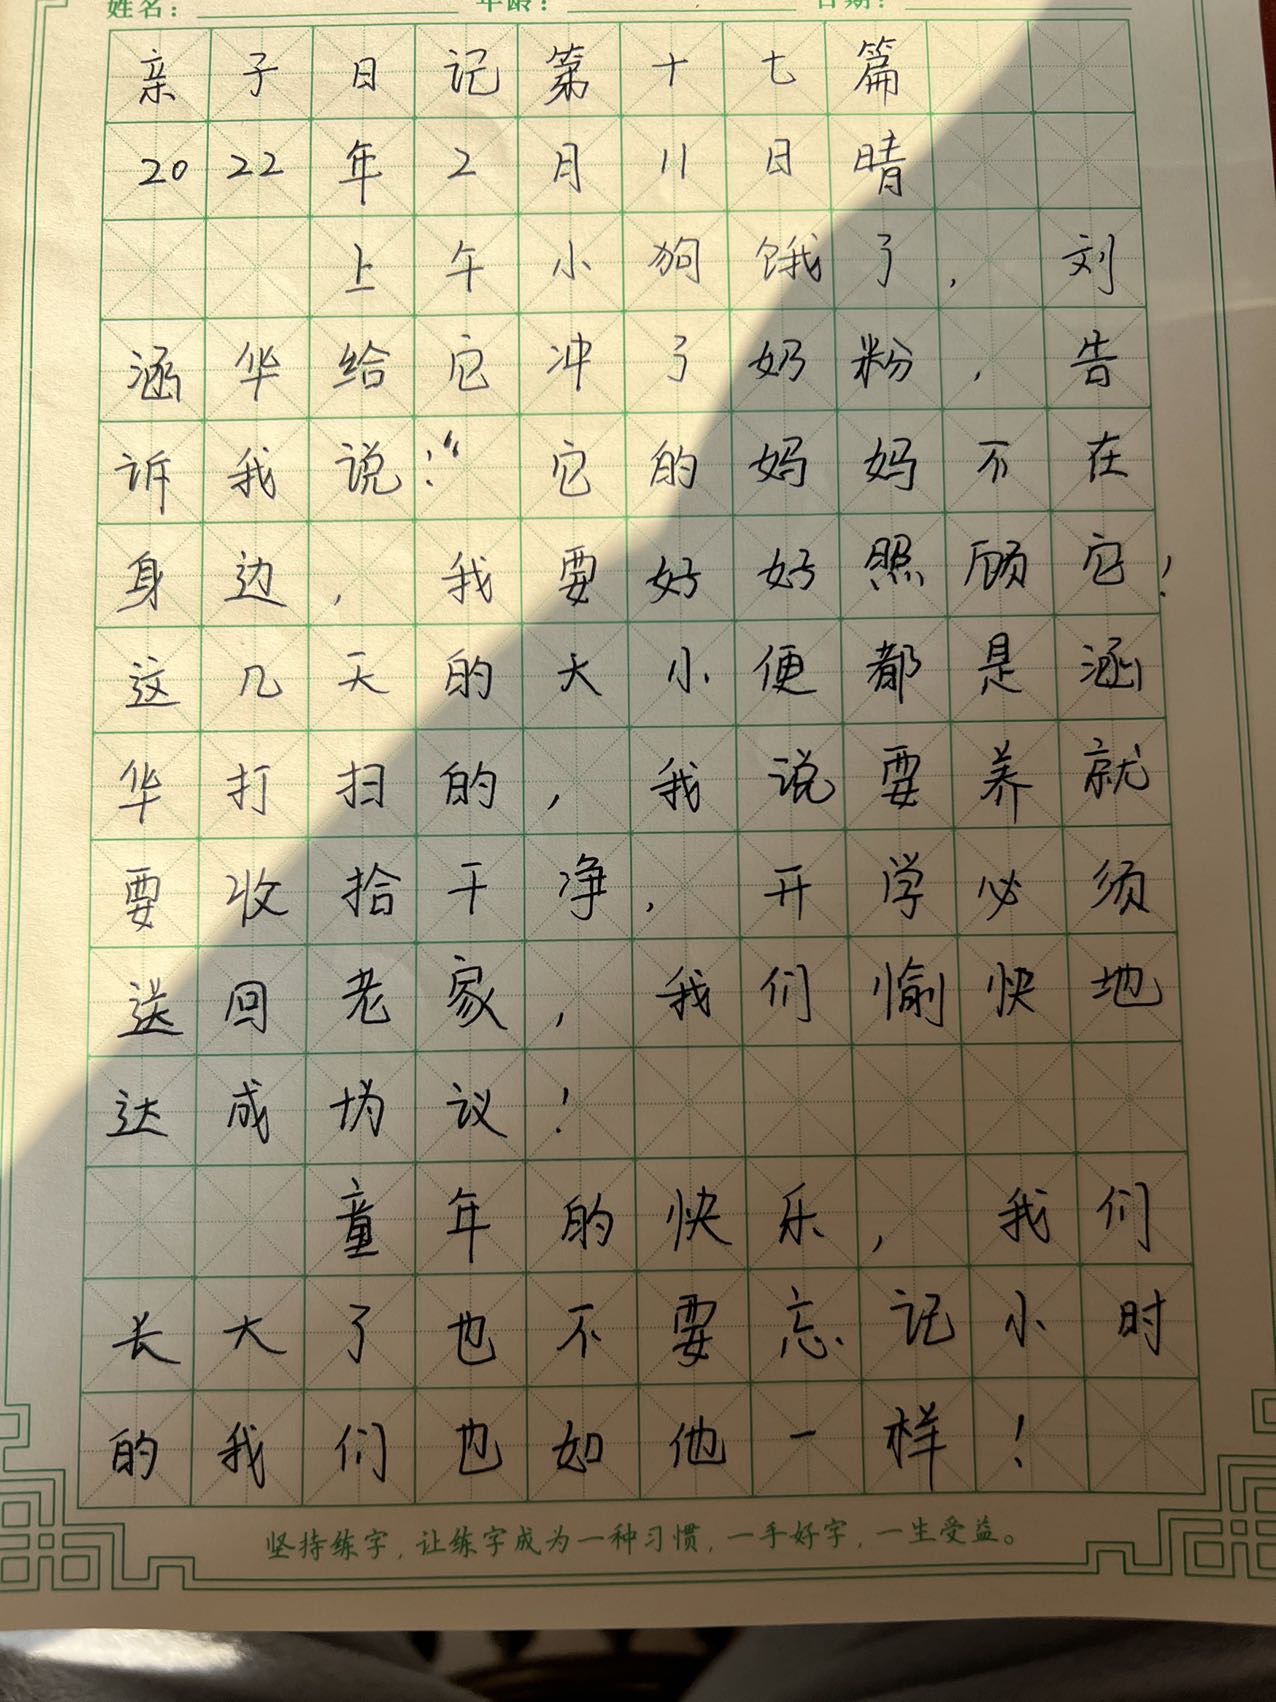 姓名： 年龄： 日期：
亲子日记第十七篇
2022年2月11日晴
上午小狗饿了，刘
涵华给它冲了奶粉，告
诉我说：“它的妈妈不在
身边，我要好好照顾它！
这几天的大小便都是涵
华打扫的，我说要养就
要收拾干净，开学必须
送回老家，我们愉快地
达成协议！
童年的快乐，我们
长大了也不要忘记小时
的我们也如他一样！
坚持练字，让练字成为一种习惯，一手好字，一生受益。